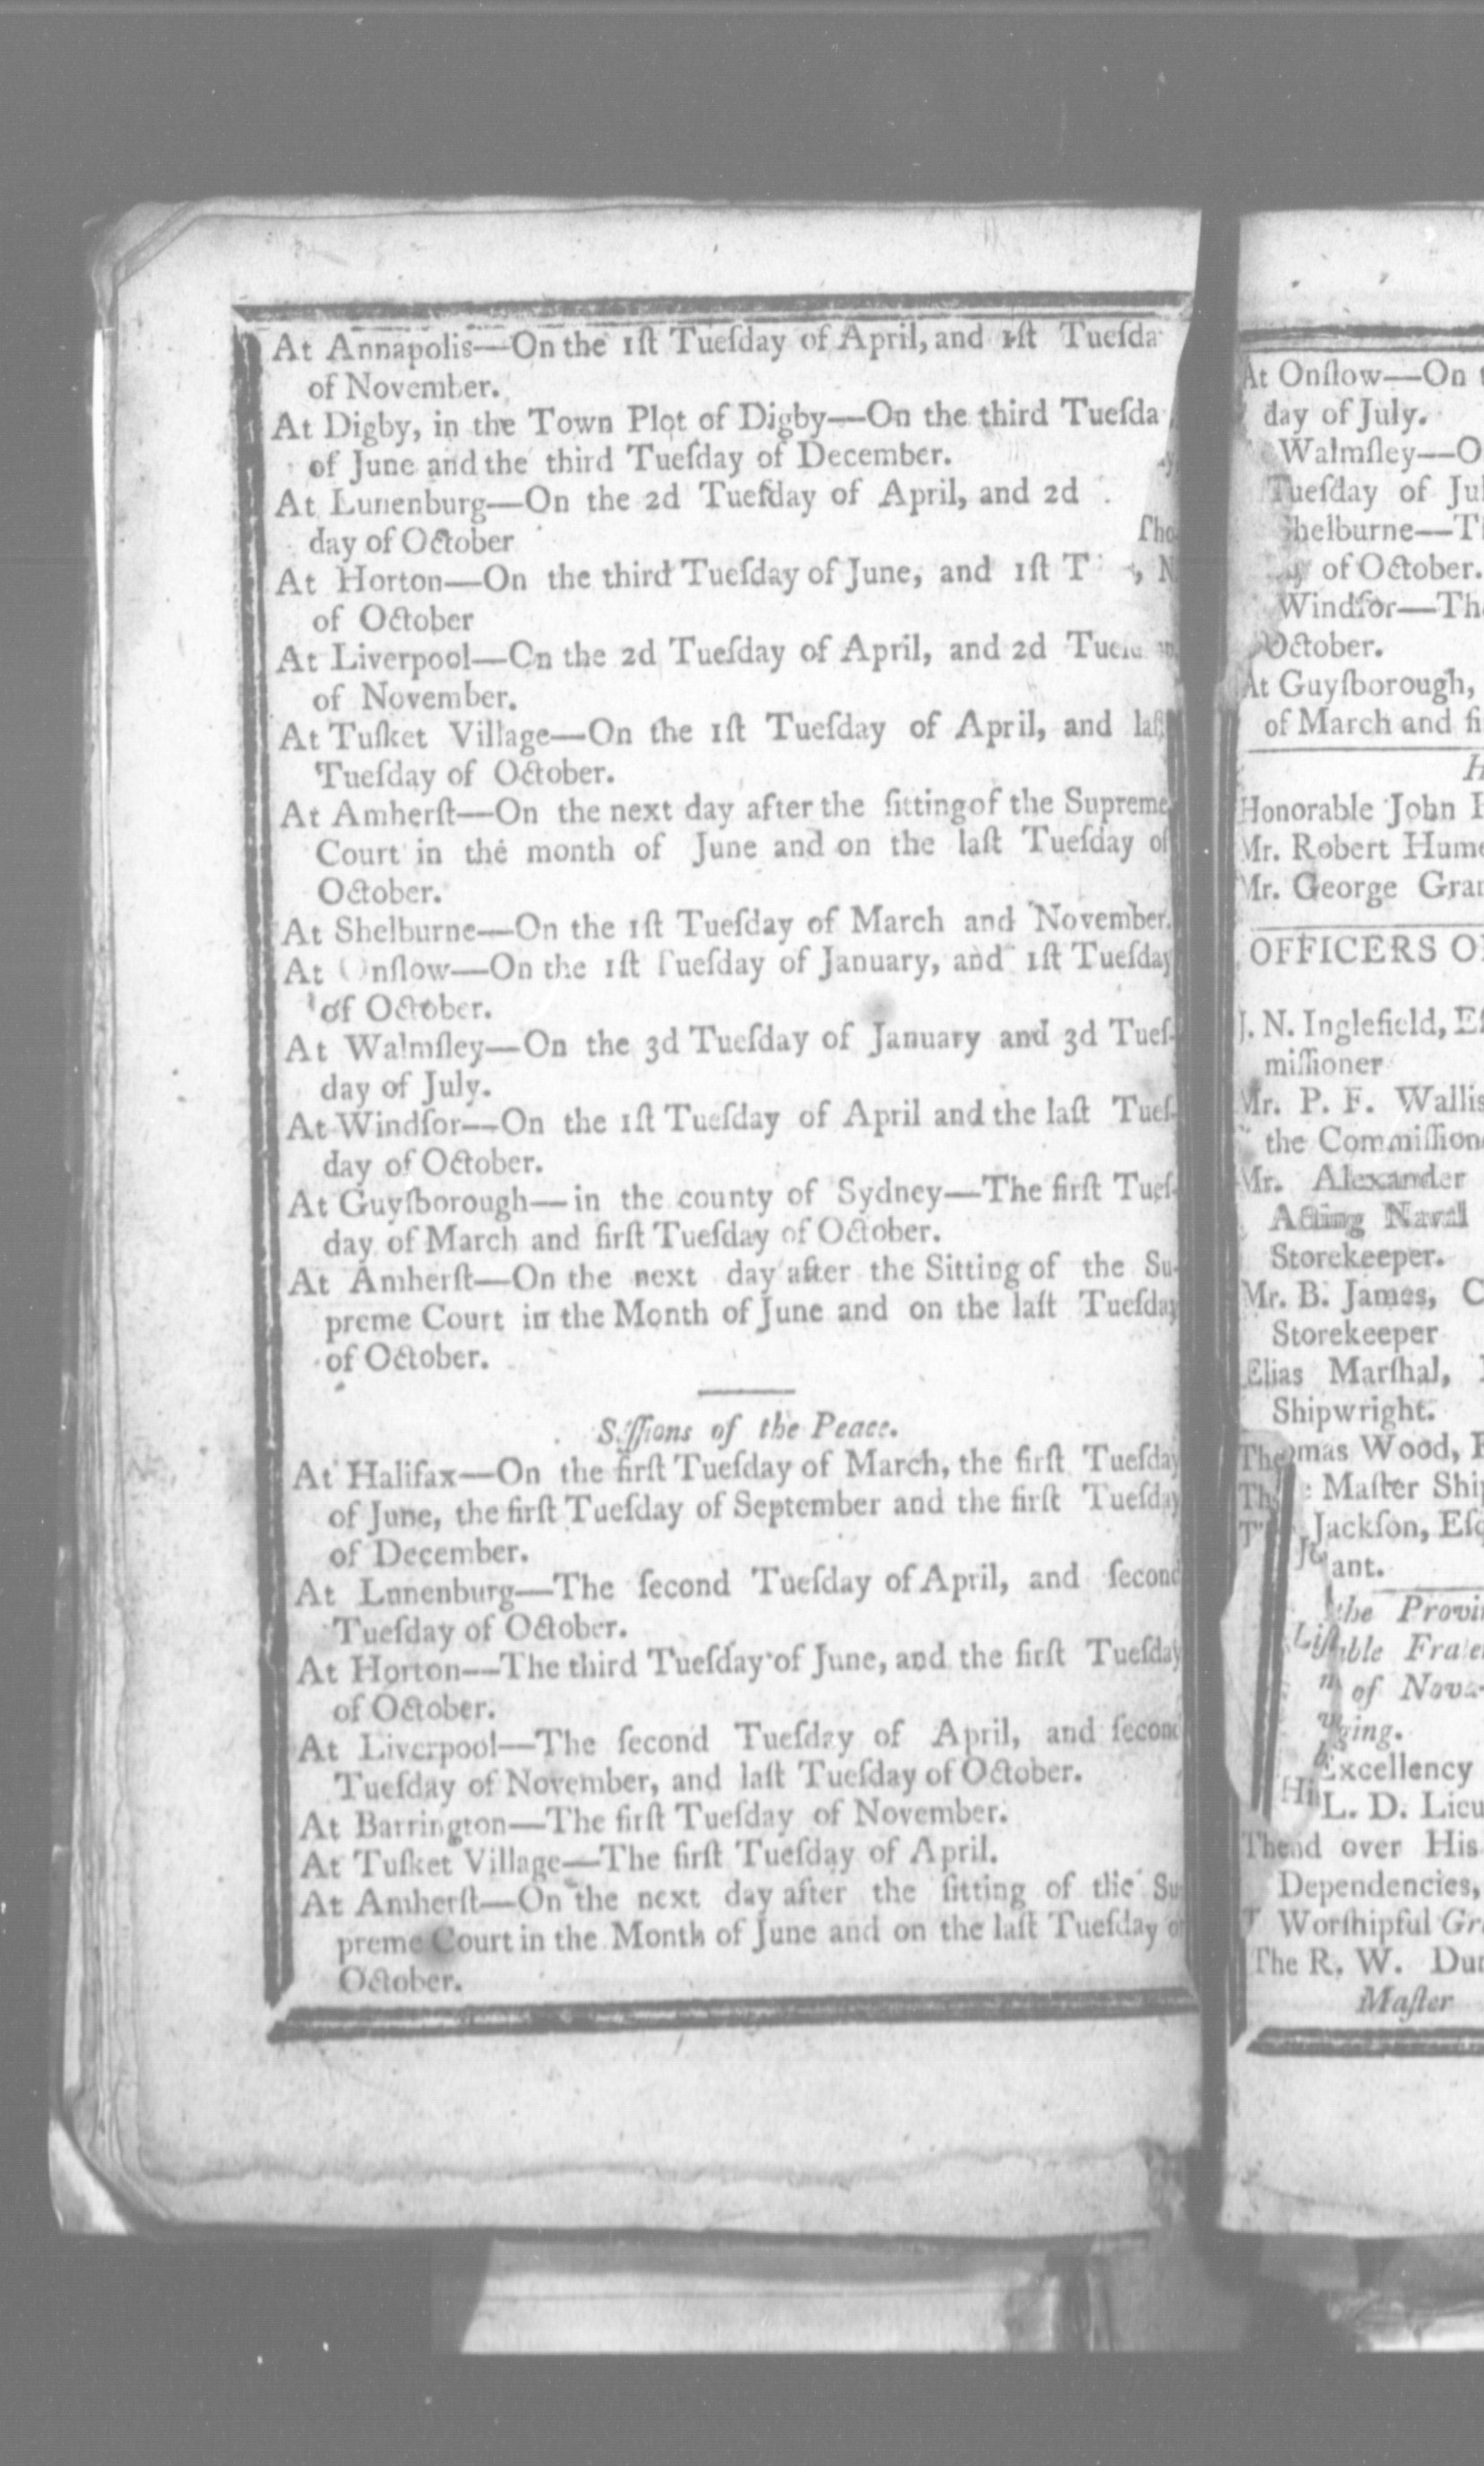 At Annapolis—On the 1ſt Tueſday of April, and 1ſt Tueſda
of November.
At Digby, in the Town Plot of Digby—On the third Tueſda
of June and the third Tueſday of December.
At Lunenburg—On the 2d Tueſday of April, and 2d
day of October
At Horton—On the third Tueſday of June, and 1ſt T
of October
At Liverpool—On the 2d Tueſday of April, and 2d
of November.
At Tuſket Village—On the 1ſt Tueſday of April, and laſt
Tueſday of October.
At Amherſt—On the next day after the ſitting of the Supreme
Court in the month of June and on the laſt Tueſday of
October.
At Shelburne—On the 1ſt Tueſday of March and November.
At Onſlow—On the 1ſt Tueſday of January, and 1ſt Tueſday
of October.
At Walmſley—On the 3d Tueſday of January and 3d Tueſ-
day of July.
At Windſor—On the 1ſt Tueſday of April and the laſt Tueſ-
day of October.
At Guyſborough—in the county of Sydney—The firſt Tueſ-
day of March and firſt Tueſday of October.
At Amherſt—On the next day after the Sitting of the Su-
preme Court in the Month of June and on the laſt Tueſday
of October.
Seſſions of the Peace.
At Halifax—On the firſt Tueſday of March, the firſt Tueſday
of June, the firſt Tueſday of September and the firſt Tueſday
of December.
At Lunenburg—The ſecond Tueſday of April, and ſecond
Tueſday of October.
At Horton—The third Tueſday of June, and the firſt Tueſday
of October.
At Liverpool—The ſecond Tueſday of April, and ſecond
Tueſday of November, and laſt Tueſday of October.
At Barrington—The firſt Tueſday of November.
At Tuſket Village—The firſt Tueſday of April.
At Amherſt—On the next day after the ſitting of the Su
preme Court in the Month of June and on the laſt Tueſday of
October.
At Onſlow—On
day of July.
Walmſley—O
Tueſday of Jul
Shelburne—T
of October.
Windſor—Th
October.
At Guyſborough,
of March and fi
H
Honorable John
Mr. Robert Hume
Mr. George Gra
OFFICERS O
J. N. Inglefield, Eſ
miſſioner
Mr. P. F. Wallis
the Commiſſion
Mr. Alexander
Acting Naval
Storekeeper.
Mr. B. James, C
Storekeeper
Elias Marſhal,
Shipwright.
Thomas Wood,
Maſter Shi
Jackſon, Eſq
ant.
the Provi
ble Frate
of Nova-
ging.
Excellency
L. D. Lieu
and over His
Dependencies,
Worſhipful Gr
The R. W. Du
Maſter